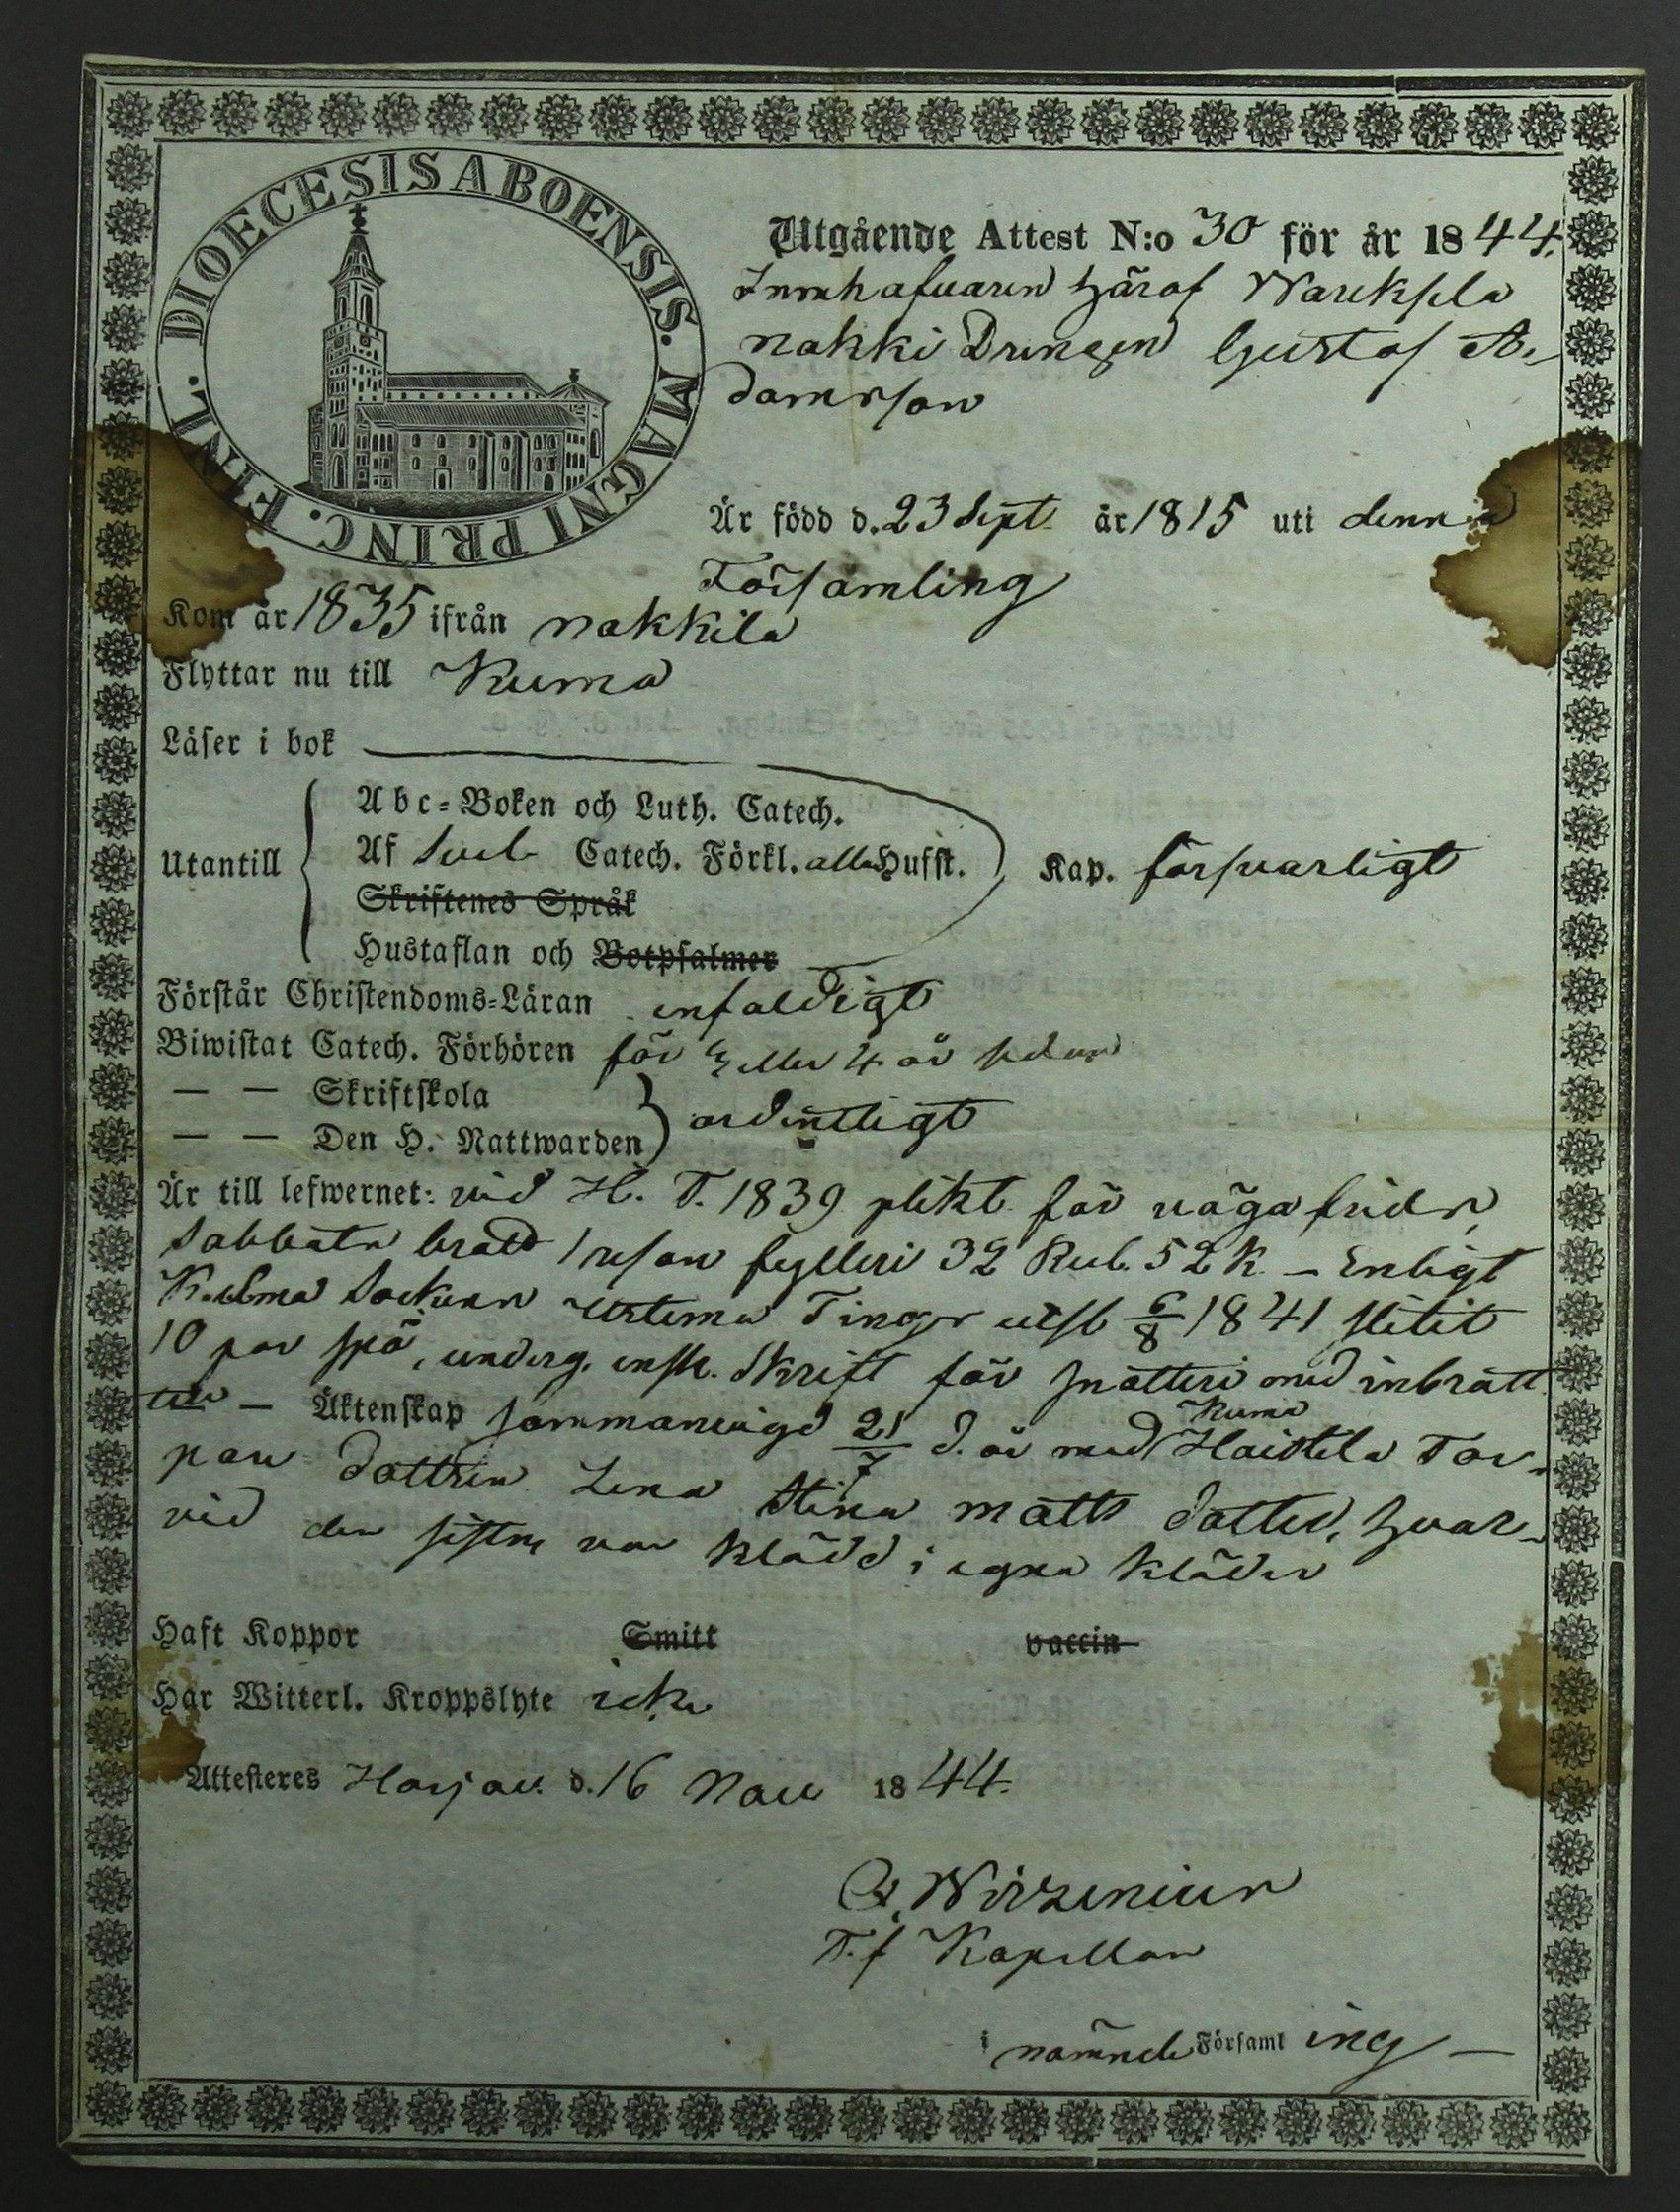 DIOECESIS ABOENSIS. MAGNI PRINC. FINL.
Utgående Attest N:o 30 för år 1844.
Innehafvaren häraf
nakki Drengen Gustaf A,
damsson
Är född d. 23 Sept. år 1815 uti denna
Församling
Kom år 1835 ifrån nakkila
Flyttar nu till Kumo
Läser i bok
Abc=Boken och Luth. Catech.
Utantill Af Sveb. Catech. Förkl. alla Hufst. Kap. försvarligt
Skriftenes Språk
Hustaflan och Botpsalmer
Förstår Christendoms=Läran enfaldigt
Biwistat Catech. Förhören för 3 eller 4 år sedan
— — Skriftskola
— — Den H. Nattwarden ordentligt
Är till lefwernet: vid H. T. 1839 plikt. för våga frids,
sabbats brott 1 resan fylleri 32 Rub. 52 K. – Enligt
Sockens Tings utsl. 6/8 1841 slitit
10 par spö, underg. ensk. Skrift för snatteri med inbrott
– Äktenskap sammanvigd 21/7 d. år med Kumo Haistila Tor-
pare dottren Lena Stina Matts dotter, hvar-
vid den sistn. var klädd i egna kläder
Haft Koppor Smitt vaccin
Har Witterl. Kroppslyte icke
Attesteres Harjav. d. 16 Nov 1844.
Wirzenius
T. f. Kapellan
i nämnde Församl ing –